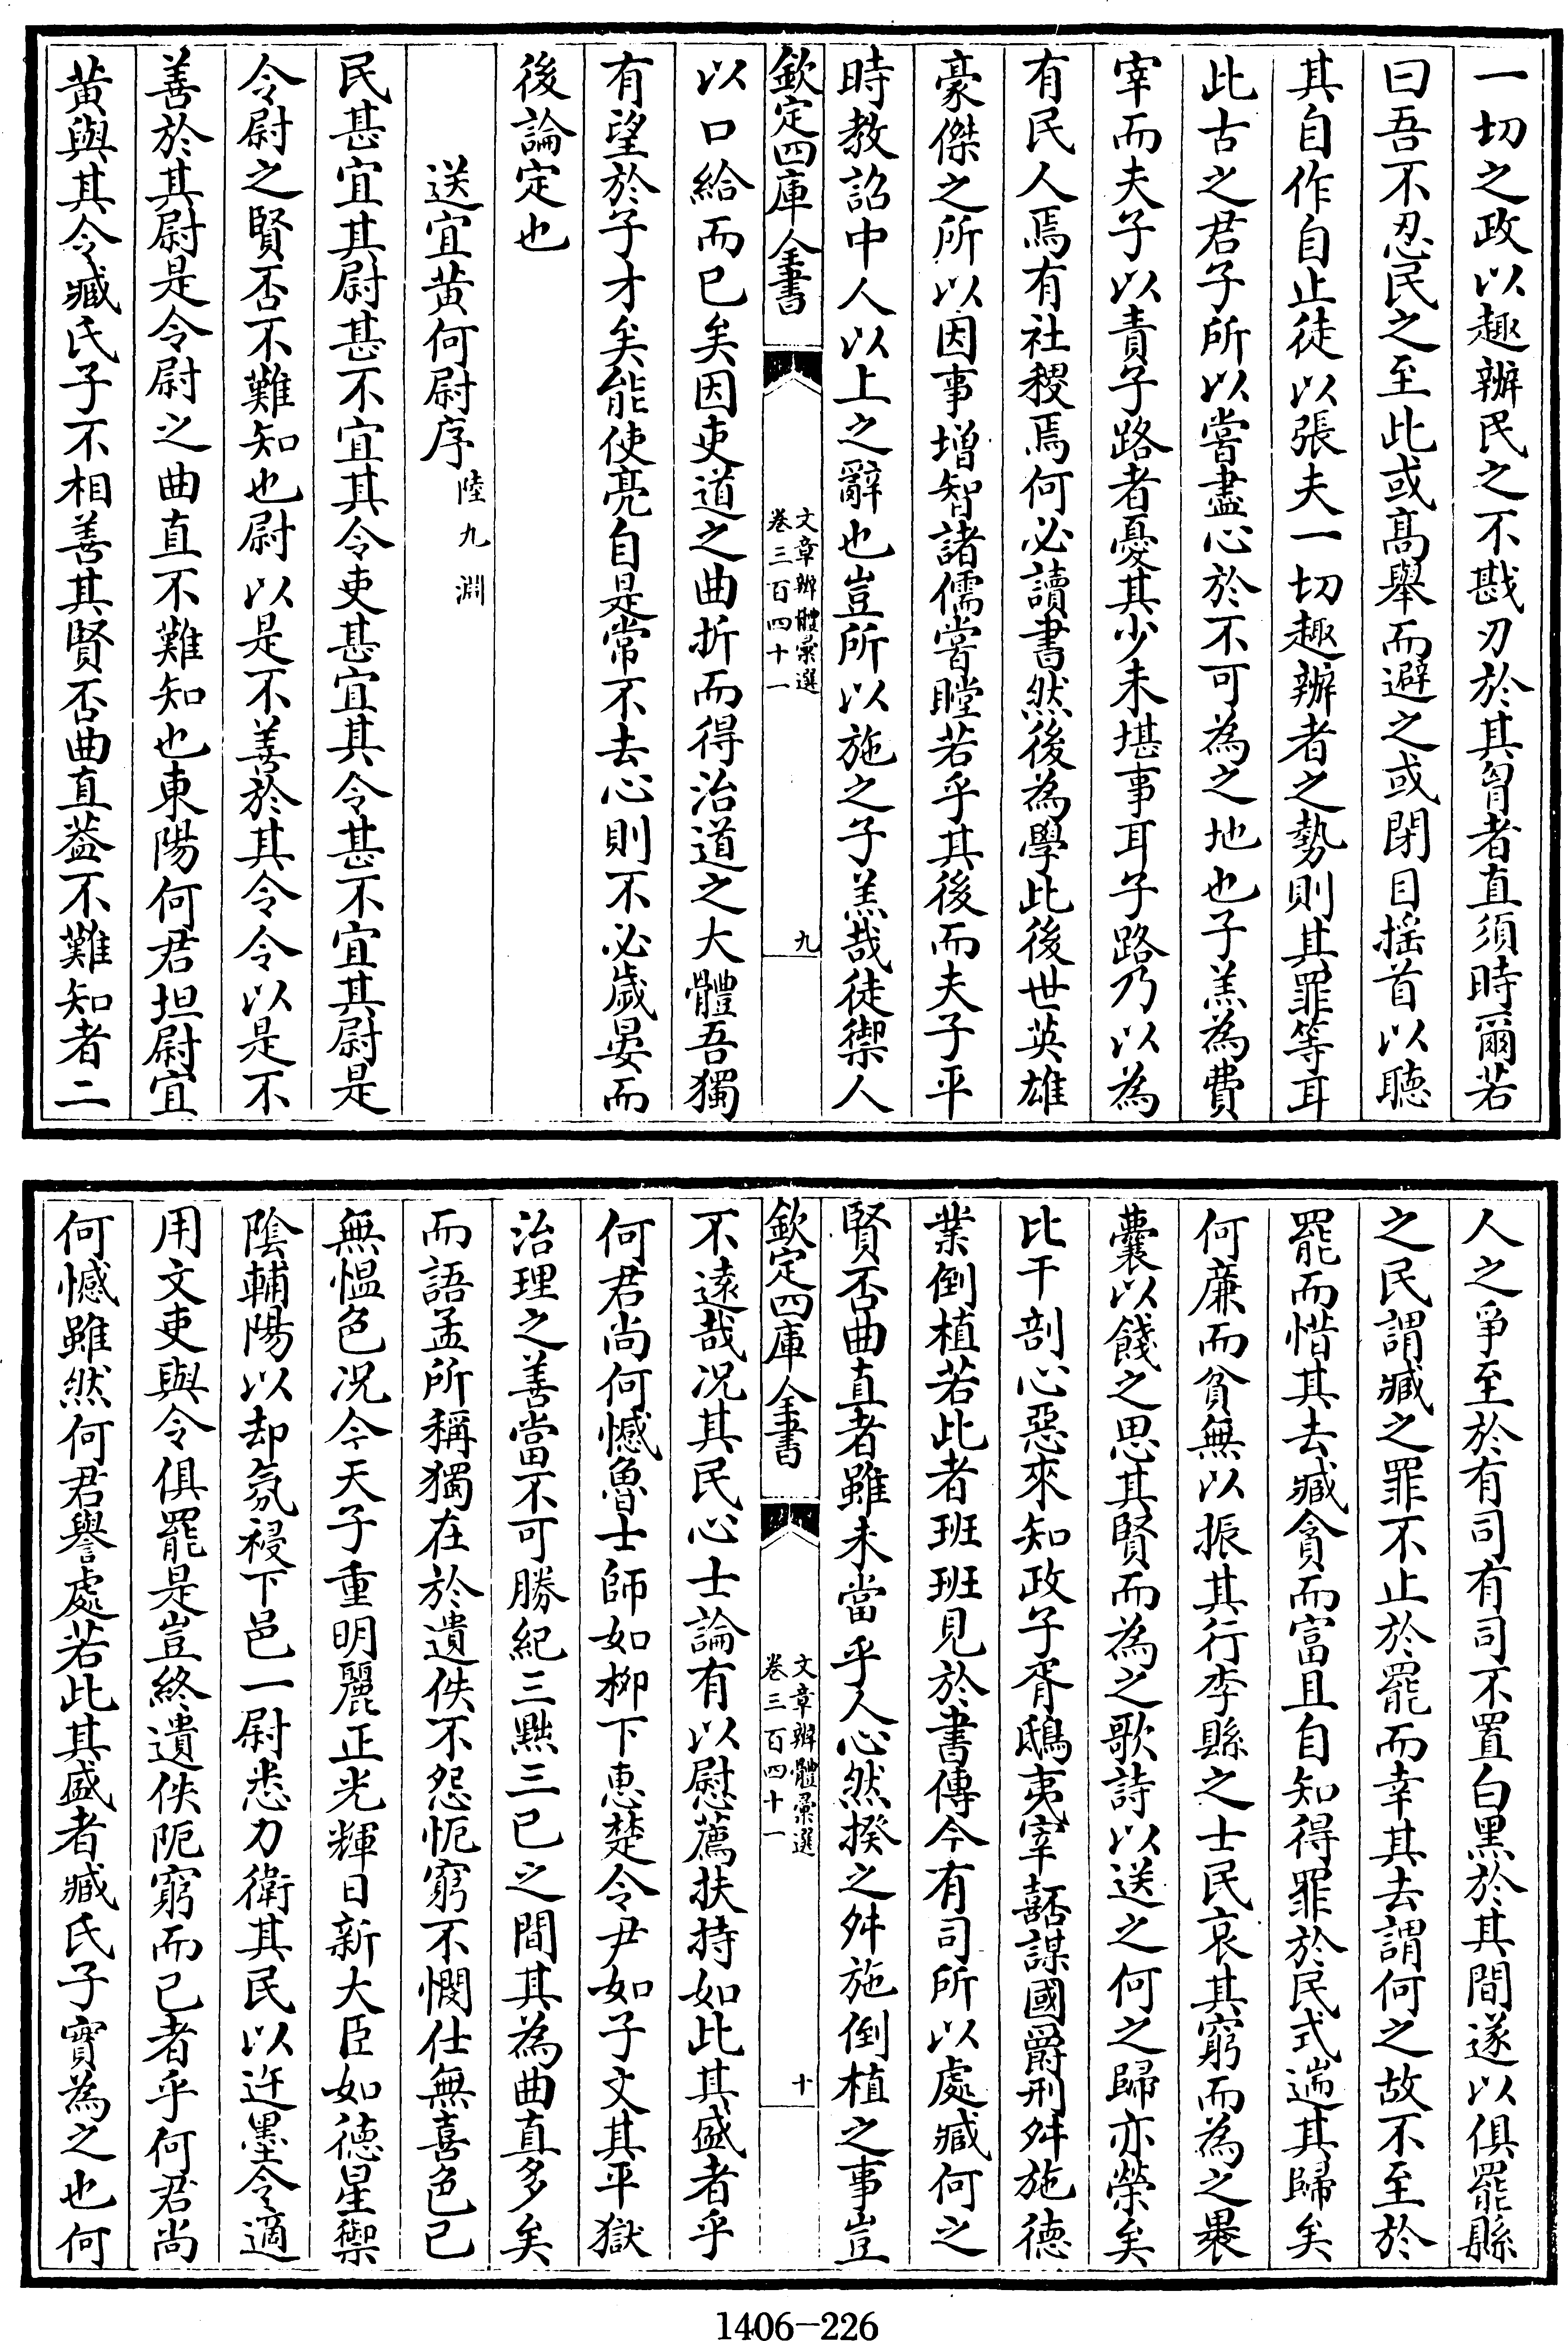 一切之政以趣辦民之不戡刃於其胷者直須時爾若
曰吾不忍民之至此或高舉而避之或閉目揺首以聽
其自作自止徒以張夫一切趣辦者之勢則其罪等耳
此古之君子所以嘗盡心於不可為之地也子羔為費
宰而夫子以責子路者憂其少未堪事耳子路乃以為
有民人焉有社稷焉何必讀書然後為學此後世英雄
豪傑之所以因事增智諸儒嘗瞠若乎其後而夫子平
時教詔中人以上之辭也豈所以施之子羔哉徒禦人
欽定四庫全書
文章辨體彙選
卷三百四十一
九
以口給而已矣因吏道之曲折而得治道之大體吾獨
有望於子才矣能使亮自是常不去心則不必歲晏而
後論定也
送宜黄何尉序 陸九淵
民甚宜其尉甚不宜其令吏甚宜其令甚不宜其尉是
令尉之賢否不難知也尉以是不善於其令令以是不
善於其尉是令尉之曲直不難知也東陽何君坦尉宜
黄與其令臧氏子不相善其賢否曲直葢不難知者二
人之爭至於有司有司不置白黑於其間遂以俱罷縣
之民謂臧之罪不止於罷而幸其去謂何之故不至於
罷而惜其去臧貪而富且自知得罪於民式遄其歸矣
何亷而貧無以振其行李縣之士民哀其窮而為之褁
囊以餞之思其賢而為之歌詩以送之何之歸亦榮矣
比干剖心惡來知政子胥鴟夷宰嚭謀國爵刑舛施德
業倒植若此者班班見於書傳今有司所以處臧何之
賢否曲直者雖未當乎人心然揆之舛施倒植之事豈
欽定四庫全書
文章辨體彙選
卷三百四十一
十
不遠哉况其民心士論有以慰薦扶持如此其盛者乎
何君尚何憾魯士師如柳下惠楚令尹如子文其平獄
治理之善當不可勝紀三黜三已之間其為曲直多矣
而語孟所稱獨在於遺佚不怨阨窮不憫仕無喜色已
無愠色况今天子重明麗正光輝日新大臣如德星禦
隂輔陽以却氛祲下邑一尉悉力衛其民以迕墨令適
用文吏與令俱罷是豈終遺佚阨窮而已者乎何君尚
何憾雖然何君譽處若此其盛者臧氏子實為之也何
1406-226